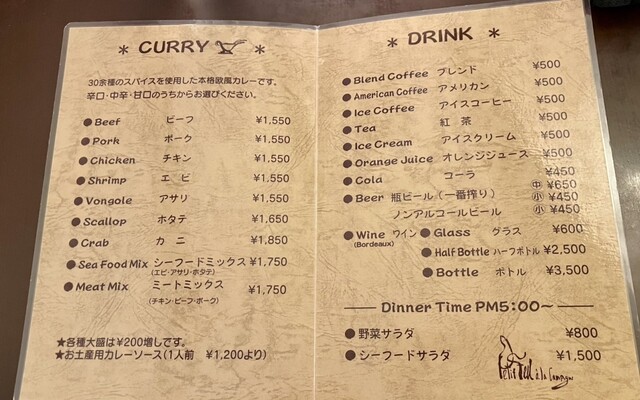 * CURRY *
30余種のスパイスを使用した本格欧風カレーです。
辛口・中辛・甘口のうちからお選びください。
●Beef ビーフ ¥1,550
●Pork ポーク ¥1,550
●Chicken チキン ¥1,550
●Shrimp エビ ¥1,550
●Vongole アサリ ¥1,550
●Scallop ホタテ ¥1,650
●Crab カニ ¥1,850
●Sea Food Mix シーフードミックス ¥1,750
(エビ・アサリ・ホタテ)
●Meat Mix ミートミックス ¥1,750
(チキン・ビーフ・ポーク)
★各種大盛は¥200増しです。
★お土産用カレーソース(1人前 ¥1,200より)
* DRINK *
●Blend Coffee ブレンド ¥500
●American Coffee アメリカン ¥500
●Ice Coffee アイスコーヒー ¥500
●Tea 紅茶 ¥500
●Ice Cream アイスクリーム ¥500
●Orange Juice オレンジジュース ¥500
●Cola コーラ ¥450
●Beer 瓶ビール(一番搾り) 中 ¥650
小 ¥450
ノンアルコールビール 小 ¥450
●Wine ワイン ●Glass グラス ¥600
(Bordeaux)
●Half Bottle ハーフボトル ¥2,500
●Bottle ボトル ¥3,500
Dinner Time PM5:00~
●野菜サラダ ¥800
●シーフードサラダ ¥1,500
Petit
à la